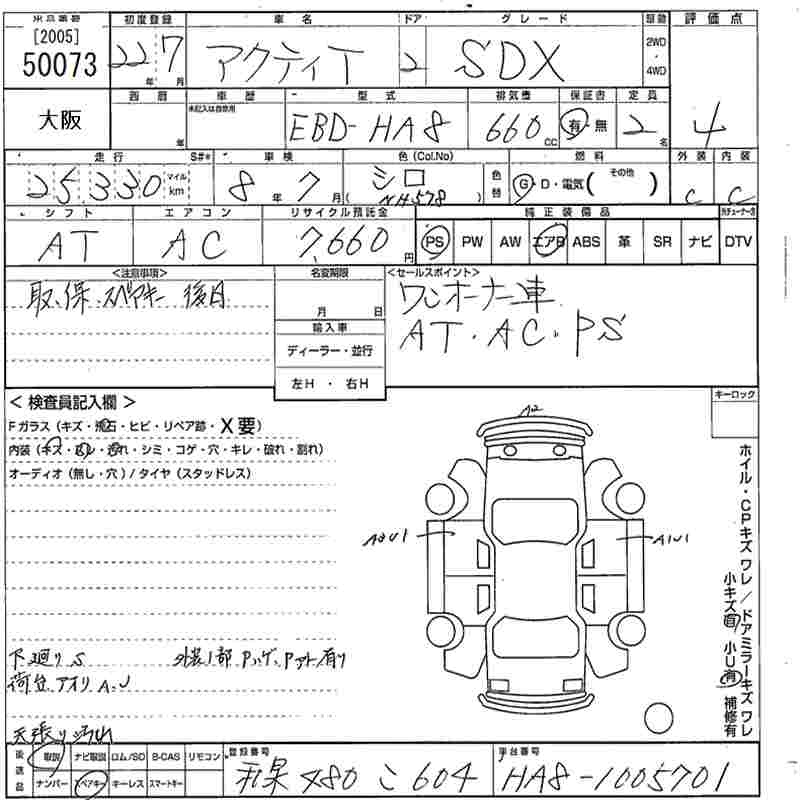 東京業務 初度登録 車名 ドア グレード 駆動 評価点
[2005] 50073 22年7月 アクティT 2 SDX 2WD・4WD 4
大阪 西暦 年 車歴 未記入は自家用 型式 EBD-HA8 排気量 660cc 保証書 有・無 定員 2名
走行 25330 マイル km S#* 車検 8年7月 色(Col.No) シロ (NH-578) 色替 燃料 G・D・電気( その他 ) 外装 C 内装 C
シフト AT エアコン AC リサイクル預託金 7,660円 純正装備品 PS PW AW エアB ABS 革 SR ナビ DTV
<注意事項> 名変期限 <セールスポイント>
取、保、スペアキー 後日 月 日 ワンオーナー車
輸入車 AT・AC・PS
ディーラー・並行
左H・右H
<検査員記入欄> キーロック
Fガラス(キズ・飛石・ヒビ・リペア跡・X要)
内装(キズ・汚れ・シミ・コゲ・穴・キレ・破れ・割れ)
オーディオ(無し・穴)/タイヤ(スタッドレス)
A2
A2U1 A1U1
ホイル・CPキズ ワレ/ドアミラーキズ ワレ
小キズ 面 小U 有 補修有
下廻りS 外装1部 有り
荷台 アオリ A、U
天張り汚れ
後送品 取説 ナビ取説 ロム/SD B-CAS リモコン 登録番号 車台番号
ナンバー スペアキー キーレス スマートキー 480 こ 604 HA8-1005701